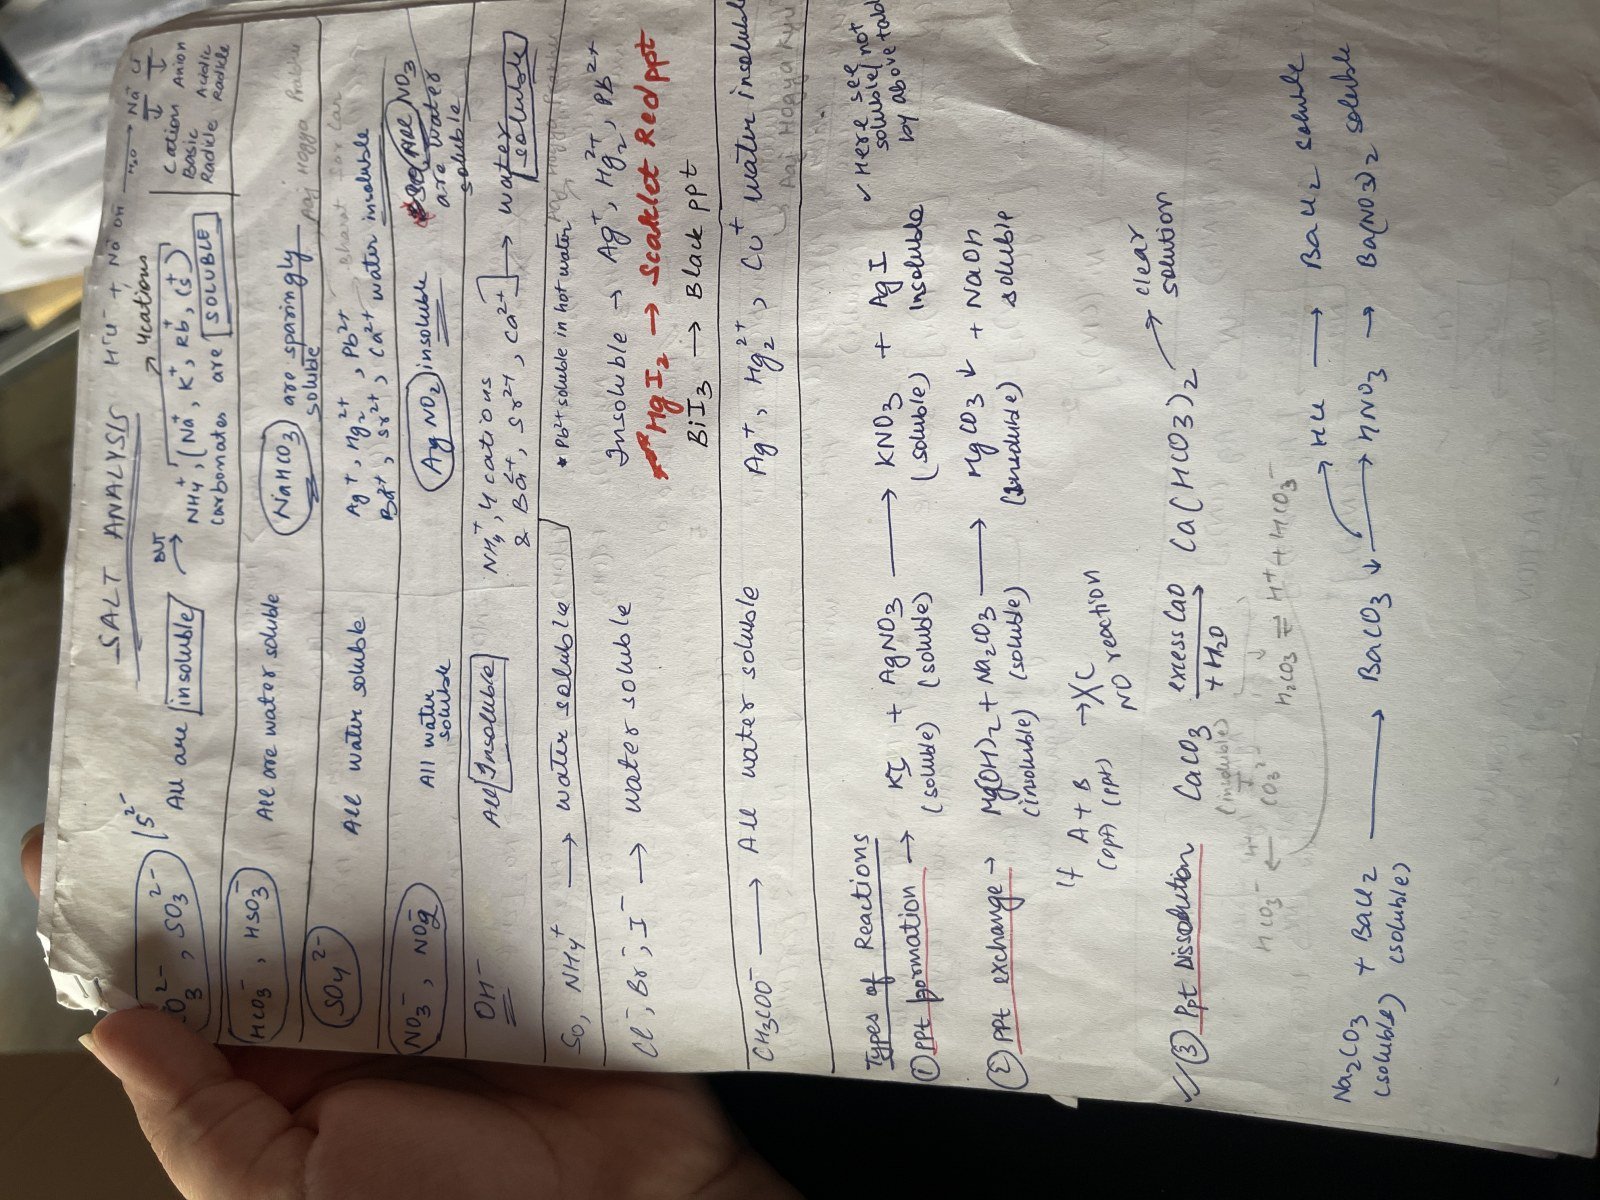 SALT ANALYSIS
H⁺Cl⁻ + Na⁺OH⁻ —H₂O→ Na⁺ Cl⁻
Cation Anion
Basic Acidic
Radicle Radicle
CO₃²⁻, SO₃²⁻ / S²⁻
All are insoluble
but → NH₄⁺, (Na⁺, K⁺, Rb⁺, Cs⁺) → 4 cations
carbonates are SOLUBLE
HCO₃⁻, HSO₃⁻ All are water soluble NaHCO₃ are sparingly
soluble
SO₄²⁻ All water soluble Ag⁺, Hg₂²⁺, Pb²⁺
Ba²⁺, Sr²⁺, Ca²⁺ water insoluble
NO₃⁻, NO₂⁻ All water
soluble
AgNO₂ insoluble
ARE NO₃
are water
soluble
OH⁻ All Insoluble NH₄⁺, 4 cations
& Ba²⁺, Sr²⁺, Ca²⁺ → water
soluble
So, NH₄⁺ → water soluble * Pb²⁺ soluble in hot water
Cl⁻, Br⁻, I⁻ → water soluble Insoluble → Ag⁺, Hg₂²⁺, Pb²⁺
HgI₂ → Scarlet Red ppt
BiI₃ → Black ppt
CH₃COO⁻ → All water soluble Ag⁺, Hg₂²⁺, Cu⁺ water insoluble
Types of Reactions
① ppt formation → KI + AgNO₃ → KNO₃ + AgI
(soluble) (soluble) (soluble) Insoluble
✓ Here see
soluble/not
by above tab
② ppt exchange → Mg(OH)₂ + Na₂CO₃ → MgCO₃ ↓ + NaOH
(insoluble) (soluble) (Insoluble) soluble
If A + B → XC
(ppt) (ppt) NO reaction
✓✓ ③ Ppt Dissolution CaCO₃ excess CaO + H₂O → Ca(HCO₃)₂ → clear
solution
(insoluble)
HCO₃⁻ ← H⁺ CO₃²⁻
H₂CO₃ ⇌ H⁺ + HCO₃⁻
Na₂CO₃ + BaCl₂ → BaCO₃ ↓ → HCl → BaCl₂ soluble
(soluble) (soluble)
→ HNO₃ → Ba(NO₃)₂ soluble